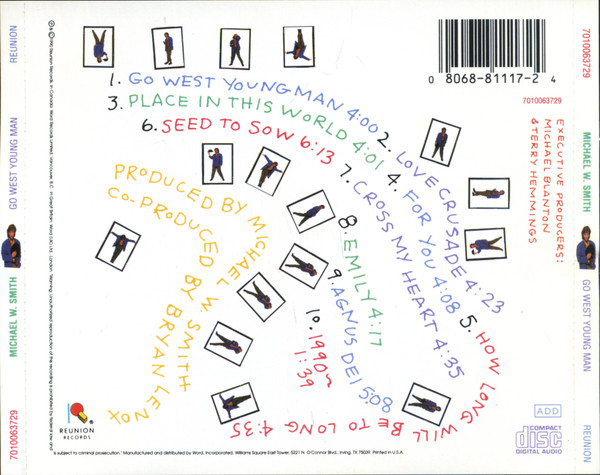 REUNION
GO WEST YOUNG MAN
MICHAEL W. SMITH
7010063729
1. GO WEST YOUNG MAN 4:00
2. LOVE CRUSADE 4:23
3. PLACE IN THIS WORLD 4:01
4. FOR YOU 4:08
5. HOW LONG WILL BE TO LONG 4:35
6. SEED TO SOW 6:13
7. CROSS MY HEART 4:35
8. EMILY 4:17
9. AGNUS DEI 5:08
10. 1990~
1:39
PRODUCED BY MICHAEL W. SMITH
CO-PRODUCED BY BRYAN LENOX
0 8068-81117-2 4
7010063729
EXECUTIVE PRODUCERS:
MICHAEL BLANTON
& TERRY HEMMINGS
REUNION
RECORDS
ADD
COMPACT
disc
DIGITAL AUDIO
is subject to criminal prosecution." Manufactured and distributed by Word, Incorporated. Williams Square East Tower, 5221 N. O'Connor Blvd., Irving, TX 75039. Printed in U.S.A.
7010063729
MICHAEL W. SMITH
GO WEST YOUNG MAN
REUNION